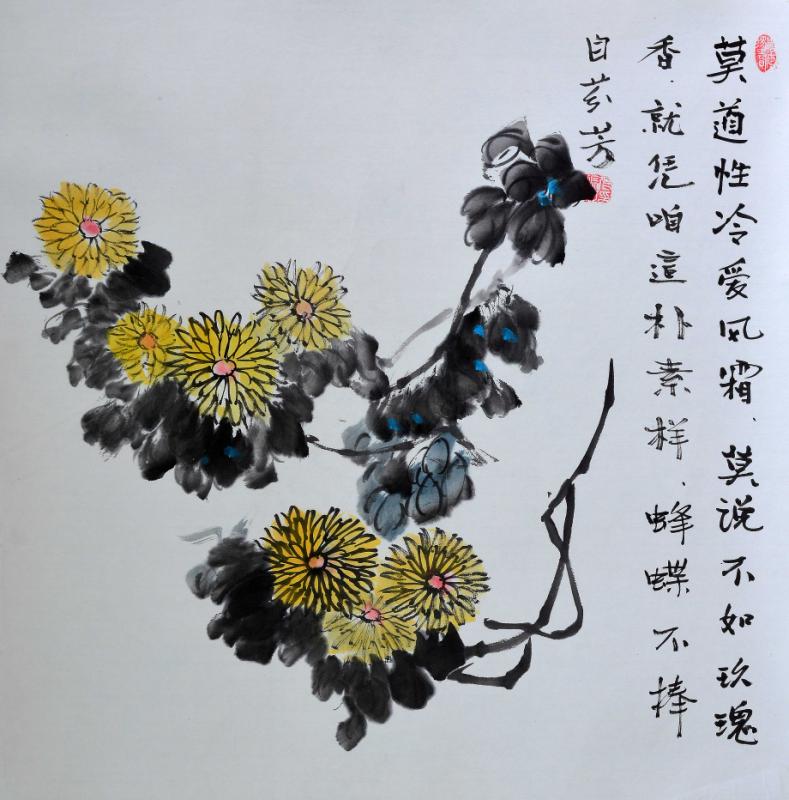 莫道性冷爱风霜、莫说不如玖瑰
香、就凭咱這朴素样、蜂蝶不捧
自芬芳